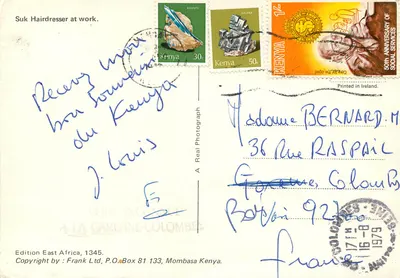 Suk Hairdresser at work.
Recevez mon
bon souvenir
du Kenya
J. Louis
Edition East Africa, 1345.
Copyright by : Frank Ltd, P.O.Box 81 133, Mombasa Kenya.
A Real Photograph
30c
Kenya
50c
KENYA
50th ANNIVERSARY OF
SOCIAL SERVICES
Printed in Ireland.
Madame BERNARD. M
36 RUE RASPAIL
Colombes
France
17H
16-8
1979